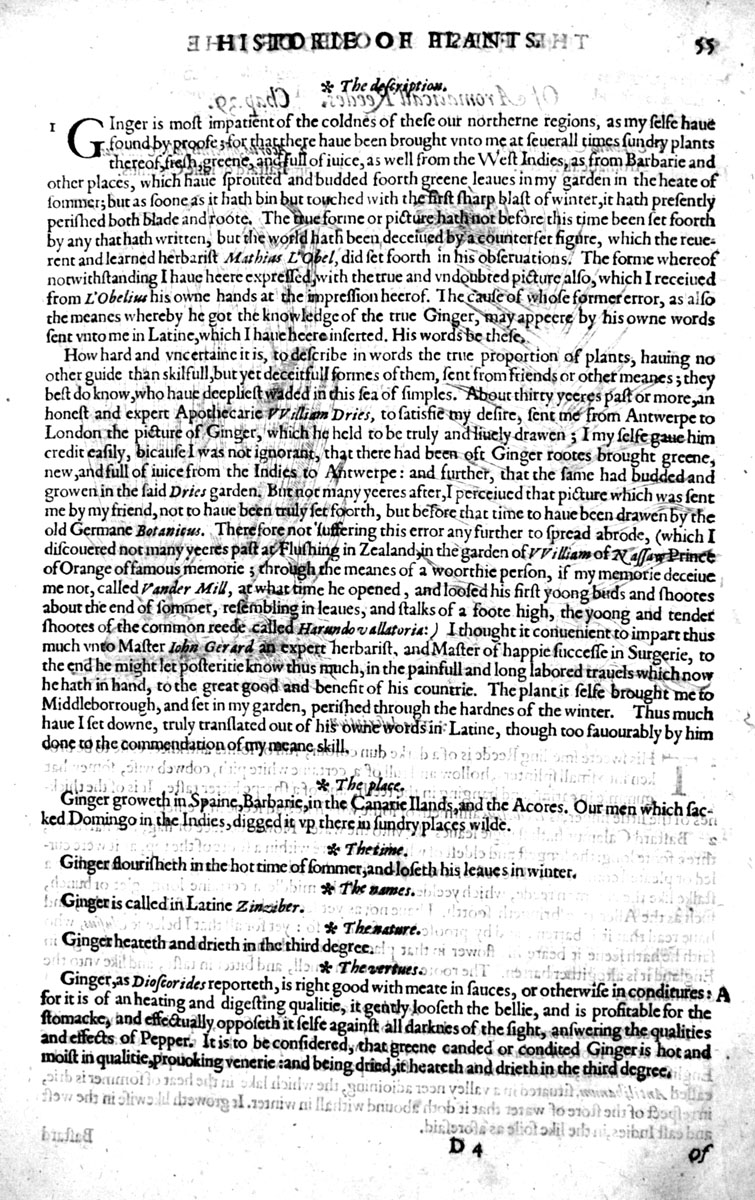 HISTORIE OF PLANTS. 55
* The description.
1 GInger is most impatient of the coldnes of these our northerne regions, as my selfe haue
found by proofe; for that there haue been brought vnto me at seuerall times sundry plants
thereof, fresh, greene, and full of iuice, as well from the West Indies, as from Barbarie and
other places, which haue sprouted and budded foorth greene leaues in my garden in the heate of
sommer; but as soone as it hath bin but touched with the first sharp blast of winter, it hath presently
perished both blade and roote. The true forme or picture hath not before this time been set foorth
by any that hath written, but the world hath been deceiued by a counterfet figure, which the reue-
rent and learned herbarist Mathias L'Obel, did set foorth in his obseruations. The forme whereof
notwithstanding I haue heere expressed, with the true and vndoubted picture also, which I receiued
from L'Obelius his owne hands at the impression heerof. The cause of whose former error, as also
the meanes whereby he got the knowledge of the true Ginger, may appeere by his owne words
sent vnto me in Latine, which I haue heere inserted. His words be these.
How hard and vncertaine it is, to describe in words the true proportion of plants, hauing no
other guide than skilfull, but yet deceitfull formes of them, sent from friends or other meanes; they
best do know, who haue deepliest waded in this sea of simples. About thirty yeeres past or more, an
honest and expert Apothecarie VVilliam Dries, to satisfie my desire, sent me from Antwerpe to
London the picture of Ginger, which he held to be truly and liuely drawen; I my selfe gaue him
credit easily, bicause I was not ignorant, that there had been oft Ginger rootes brought greene,
new, and full of iuice from the Indies to Antwerpe: and further, that the same had budded and
growen in the said Dries garden. But not many yeeres after, I perceiued that picture which was sent
me by my friend, not to haue been truly set foorth, but before that time to haue been drawen by the
old Germane Botanicus. Therefore not suffering this error any further to spread abrode, (which I
discouered not many yeeres past at Flushing in Zealand, in the garden of VVilliam of Nassaw Prince
of Orange of famous memorie; through the meanes of a woorthie person, if my memorie deceiue
me not, called Vander Mill, at what time he opened, and loosed his first yoong buds and shootes
about the end of sommer, resembling in leaues, and stalks of a foote high, the yoong and tender
shootes of the common reede called Harundo vallatoria:) I thought it conuenient to impart thus
much vnto Master Iohn Gerard an expert herbarist, and Master of happie successe in Surgerie, to
the end he might let posteritie know thus much, in the painfull and long labored trauels which now
he hath in hand, to the great good and benefit of his countrie. The plant it selfe brought me to
Middleborrough, and set in my garden, perished through the hardnes of the winter. Thus much
haue I set downe, truly translated out of his owne words in Latine, though too fauourably by him
done to the commendation of my meane skill.
* The place.
Ginger groweth in Spaine, Barbarie, in the Canarie Ilands, and the Acores. Our men which sac-
ked Domingo in the Indies, digged it vp there in sundry places wilde.
* The time.
Ginger flourisheth in the hot time of sommer, and loseth his leaues in winter.
* The names.
Ginger is called in Latine Zinziber.
* The nature.
Ginger heateth and drieth in the third degree.
* The vertues.
Ginger, as Dioscorides reporteth, is right good with meate in sauces, or otherwise in conditures: A
for it is of an heating and digesting qualitie, it gently looseth the bellie, and is profitable for the
stomacke, and effectually opposeth it selfe against all darknes of the sight, answering the qualities
and effects of Pepper. It is to be considered, that greene canded or condited Ginger is hot and
moist in qualitie, prouoking venerie: and being dried, it heateth and drieth in the third degree.
D 4
Of